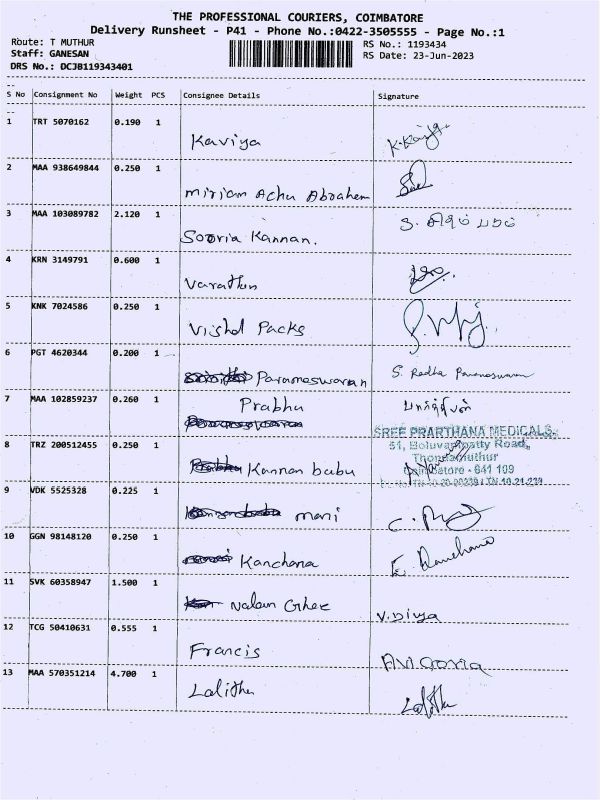 THE PROFESSIONAL COURIERS, COIMBATORE
Delivery Runsheet - P41 - Phone No.:0422-3505555 - Page No.:1
Route: T MUTHUR
Staff: GANESAN
DRS No.: DCJB119343401
RS No.: 1193434
RS Date: 23-Jun-2023
S No Consignment No Weight PCS Consignee Details Signature
1 TRT 5070162 0.190 1 Kaviya
2 MAA 938649844 0.250 1 Miriam Achu Abraham
3 MAA 103089782 2.120 1 Sooria Kannan.
4 KRN 3149791 0.600 1 Varathan
5 KNK 7024586 0.250 1 Vishal Packs
6 PGT 4620344 0.200 1 Parameswaran S. Radha Parameswaran
7 MAA 102859237 0.260 1 Prabhu
SREE PRARTHANA MEDICALS,
51, Boluvampatty Road,
Thondamuthur
Coimbatore - 641 109
8 TRZ 200512455 0.250 1 Kannan babu
9 VDK 5525328 0.225 1 mani
10 GGN 98148120 0.250 1 Kanchana
11 SVK 60358947 1.500 1 Nalam Ghee V. Divya
12 TCG 50410631 0.555 1 Francis
13 MAA 570351214 4.700 1 Lalitha Lalitha